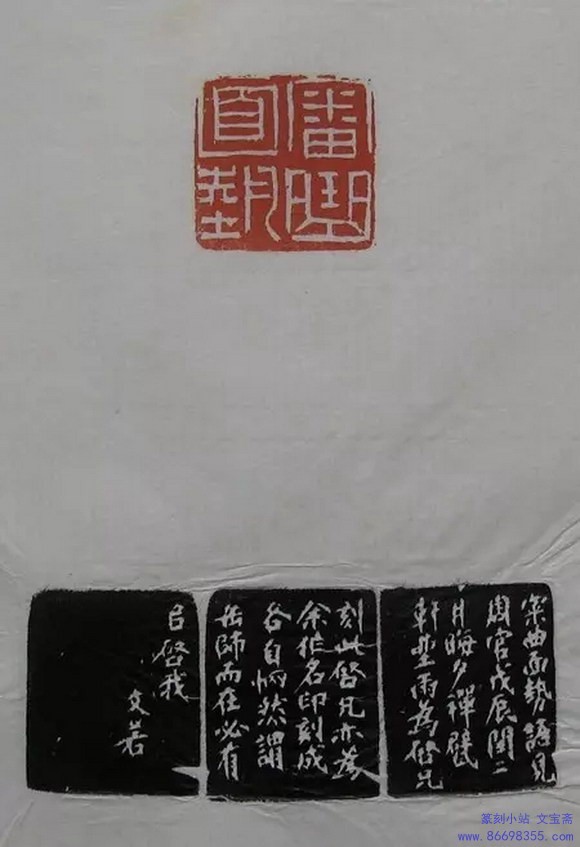 審曲
面埶
審曲面勢語見
周官戊辰閏二
月晦夕禪甓
軒坐雨為啓兄
刻此啓兄亦為
余作名印刻成
各自惘然謂
缶師而在必有
㠯啓我
文若
篆刻小站 文宝斋
www.86698355.com